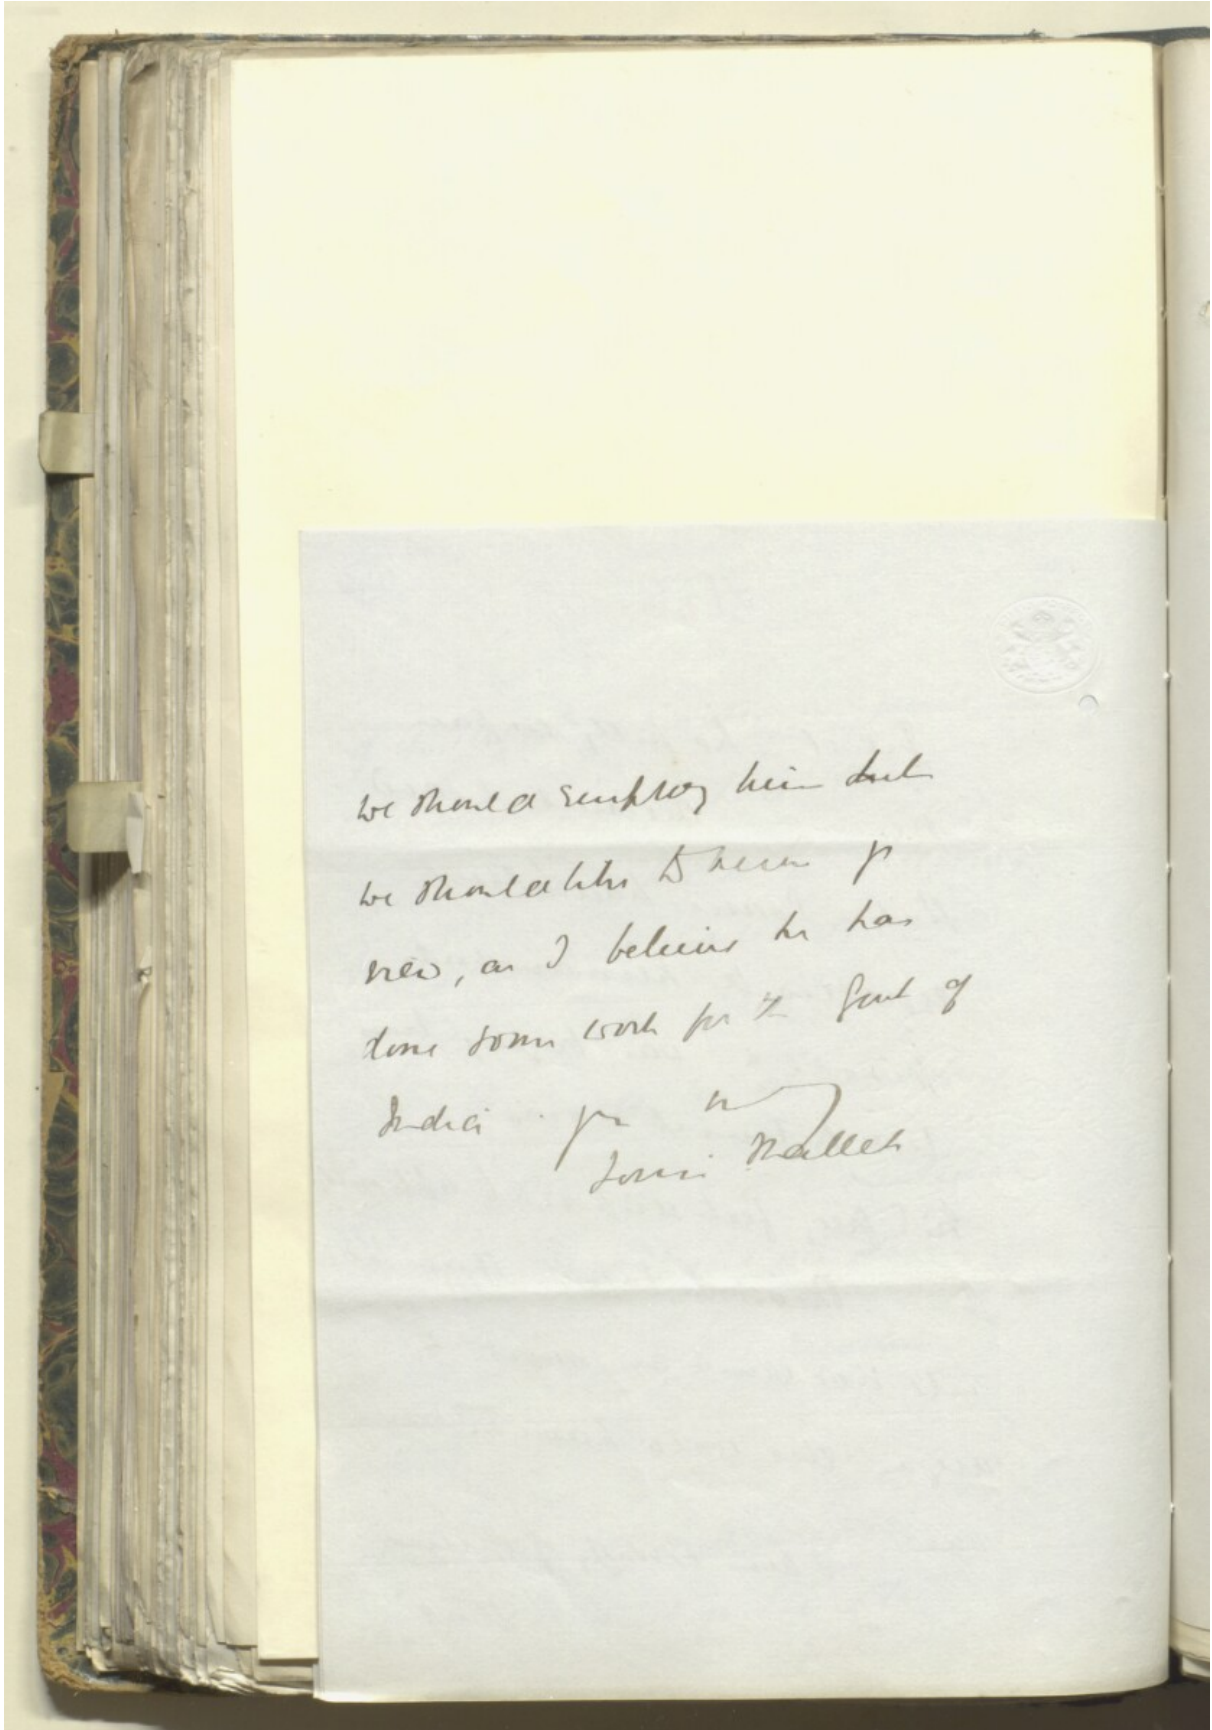 we should employ him but
we should like to know yr
view, as I believe he has
done some work for the Govt of
India. yrs
Louis Mallet